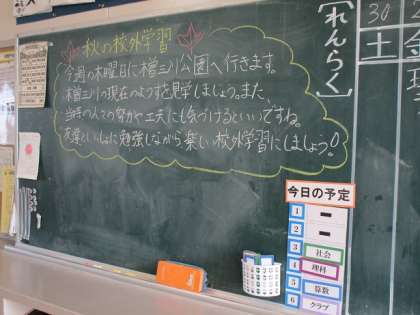 秋の校外学習
今週の木曜日に木曽三川公園へ行きます。
木曽三川の現在のようすを見学しましょう。また、
当時の人々の努力や工夫にも気づけるといいですね。
友達といっしょに勉強しながら楽しい校外学習にしましょう!
[れんらく]
30
土
金
今日の予定
1 ー
2 ー
3 社会
4 理科
5 算数
6 クラブ